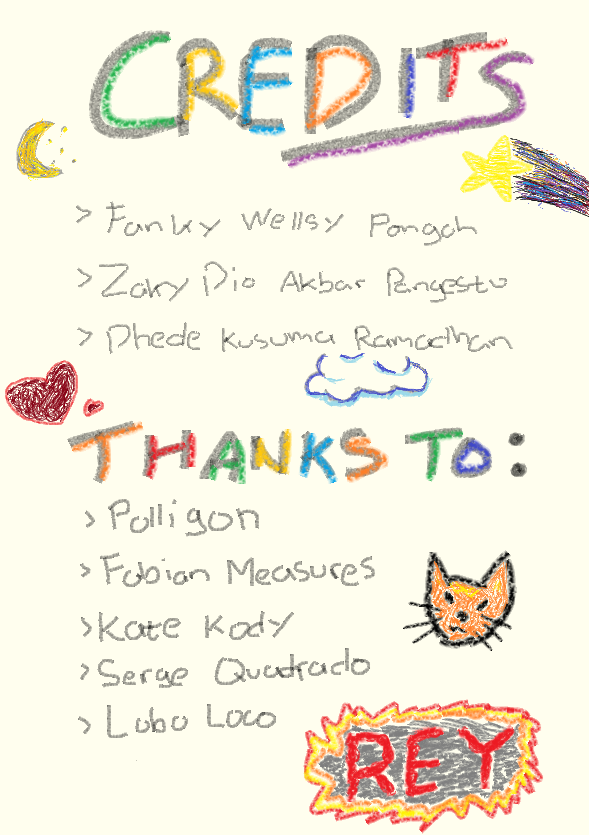 CREDITS
> Fanky Wellsy Pongoh
> Zaky Dio Akbar Pangestu
> Dhede Kusuma Ramadhan
THANKS TO:
> Polligon
> Fabian Measures
> Kate Kody
> Serge Quadrado
> Lobo Loco
REY